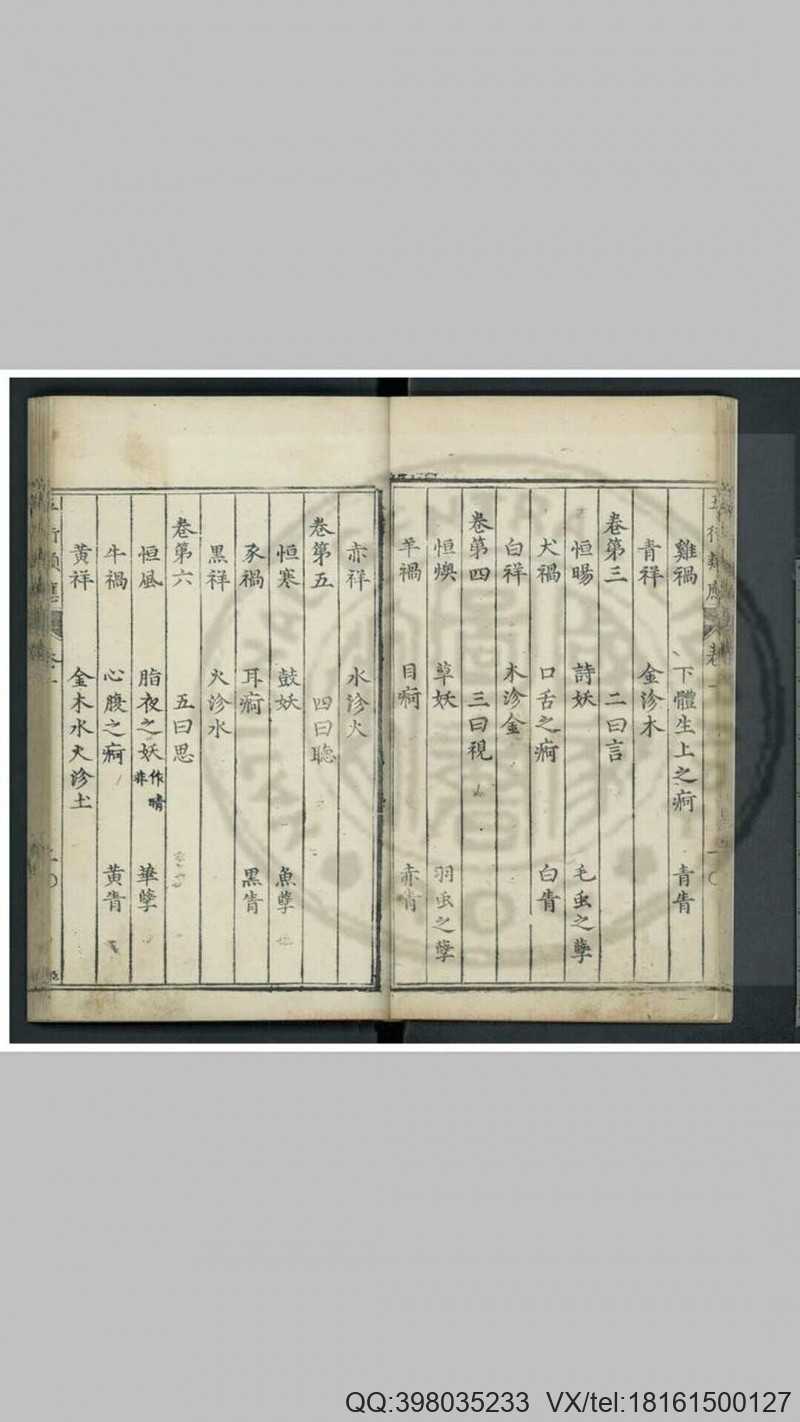 雞禍 下體生上之痾 青眚
青祥 金沴木
卷第三 二曰言
恒暘 詩妖 毛虫之孽
犬禍 口舌之痾 白眚
白祥 木沴金
卷第四 三曰視
恒燠 草妖 羽虫之孽
羊禍 目痾 赤眚
赤祥 水沴火
卷第五 四曰聽
恒寒 鼓妖 魚孽
豕禍 耳痾 黑眚
黑祥 火沴水
卷第六 五曰思
恒風 脂夜之妖 作晴非 華孽
牛禍 心腹之痾 黃眚
黃祥 金木水火沴土
QQ:398035233 VX/tel:18161500127